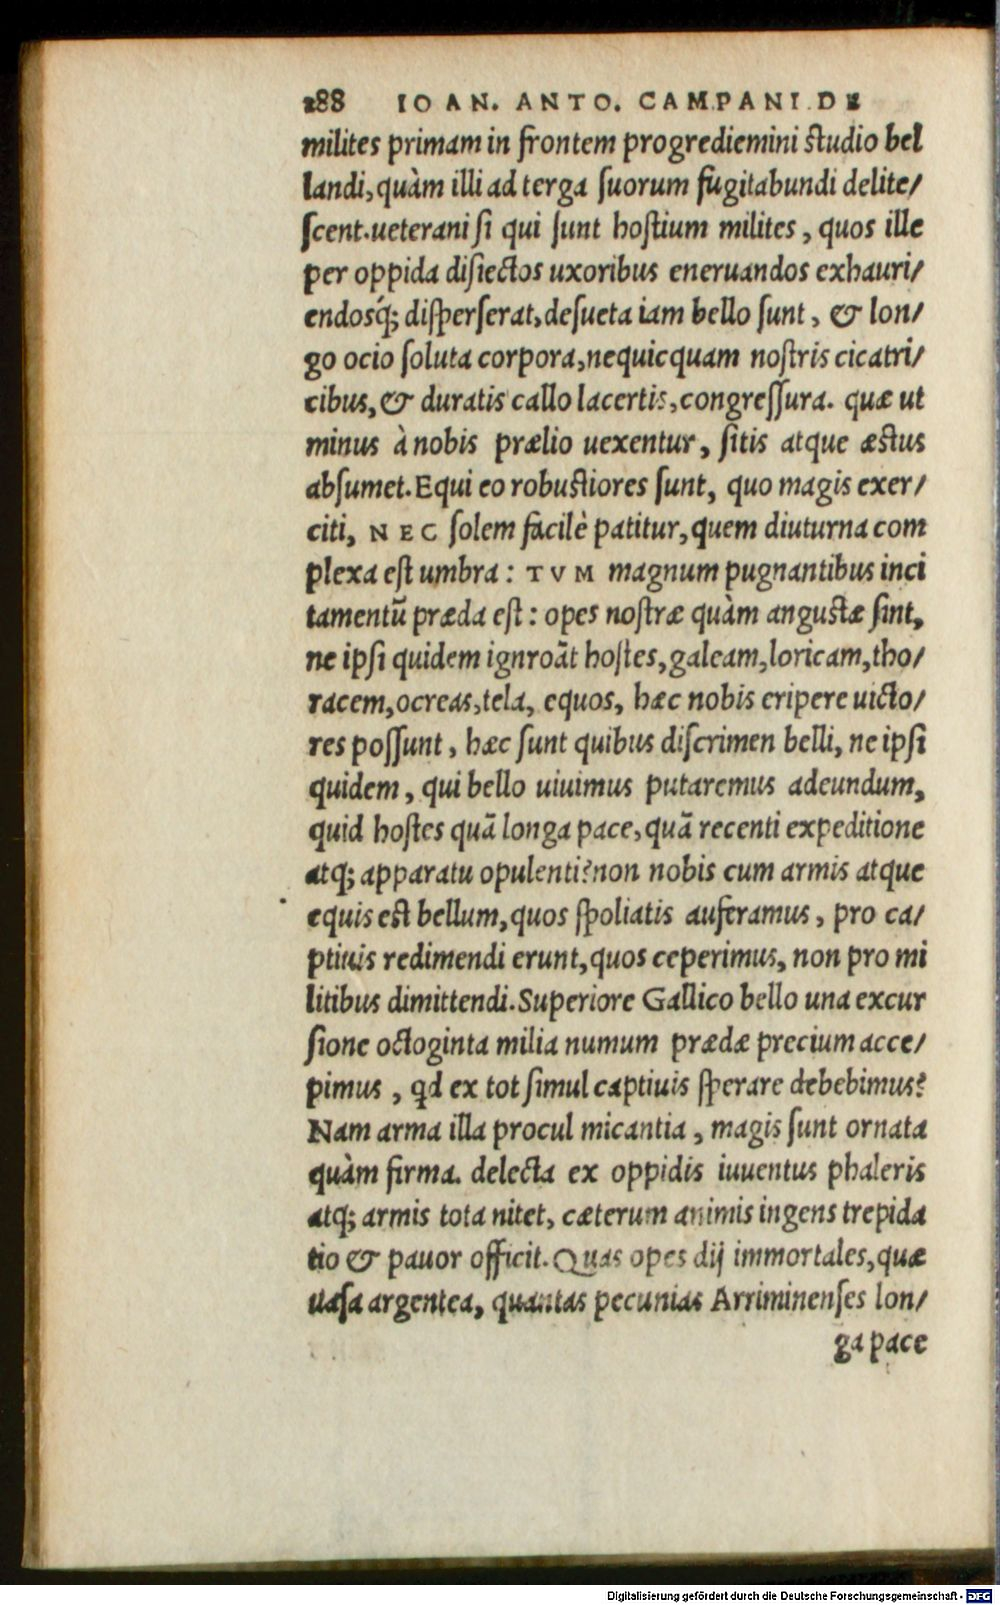 288 IOAN. ANTO. CAMPANI DE
milites primam in frontem progrediemini studio bel
landi, quàm illi ad terga ſuorum fugitabundi delite/
ſcent. ueterani ſi qui ſunt hoſtium milites, quos ille
per oppida diſiectos uxoribus eneruandos exhauri/
endosq́; diſperſerat, deſueta iam bello ſunt, & lon/
go ocio ſoluta corpora, nequicquam noſtris cicatri/
cibus, & duratis callo lacertis, congreſſura. quæ ut
minus à nobis prælio uexentur, ſitis atque æstus
abſumet. Equi eo robustiores ſunt, quo magis exer/
citi, NEC ſolem facilè patitur, quem diuturna com
plexa eſt umbra: TVM magnum pugnantibus inci
tamentũ præda eſt: opes noſtræ quàm angustæ ſint,
ne ipſi quidem ignroãt hoſtes, galeam, loricam, tho/
racem, ocreas, tela, equos, hæc nobis eripere uicto/
res poſſunt, hæc ſunt quibus diſcrimen belli, ne ipſi
quidem, qui bello uiuimus putaremus adeundum,
quid hoſtes quã longa pace, quã recenti expeditione
atq; apparatu opulenti? non nobis cum armis atque
equis est bellum, quos ſpoliatis auferamus, pro ca/
ptiuis redimendi erunt, quos ceperimus, non pro mi
litibus dimittendi. Superiore Gallico bello una excur
ſione octoginta milia numum prædæ precium acce/
pimus, qd ex tot ſimul captiuis ſperare debebimus?
Nam arma illa procul micantia, magis ſunt ornata
quàm firma. delecta ex oppidis iuuentus phaleris
atq; armis tota nitet, cæterum animis ingens trepida
tio & pauor officit. Quas opes dij immortales, quæ
uaſa argentea, quantas pecunias Arriminenſes lon/
ga pace
Digitalisierung gefördert durch die Deutsche Forschungsgemeinschaft - DFG